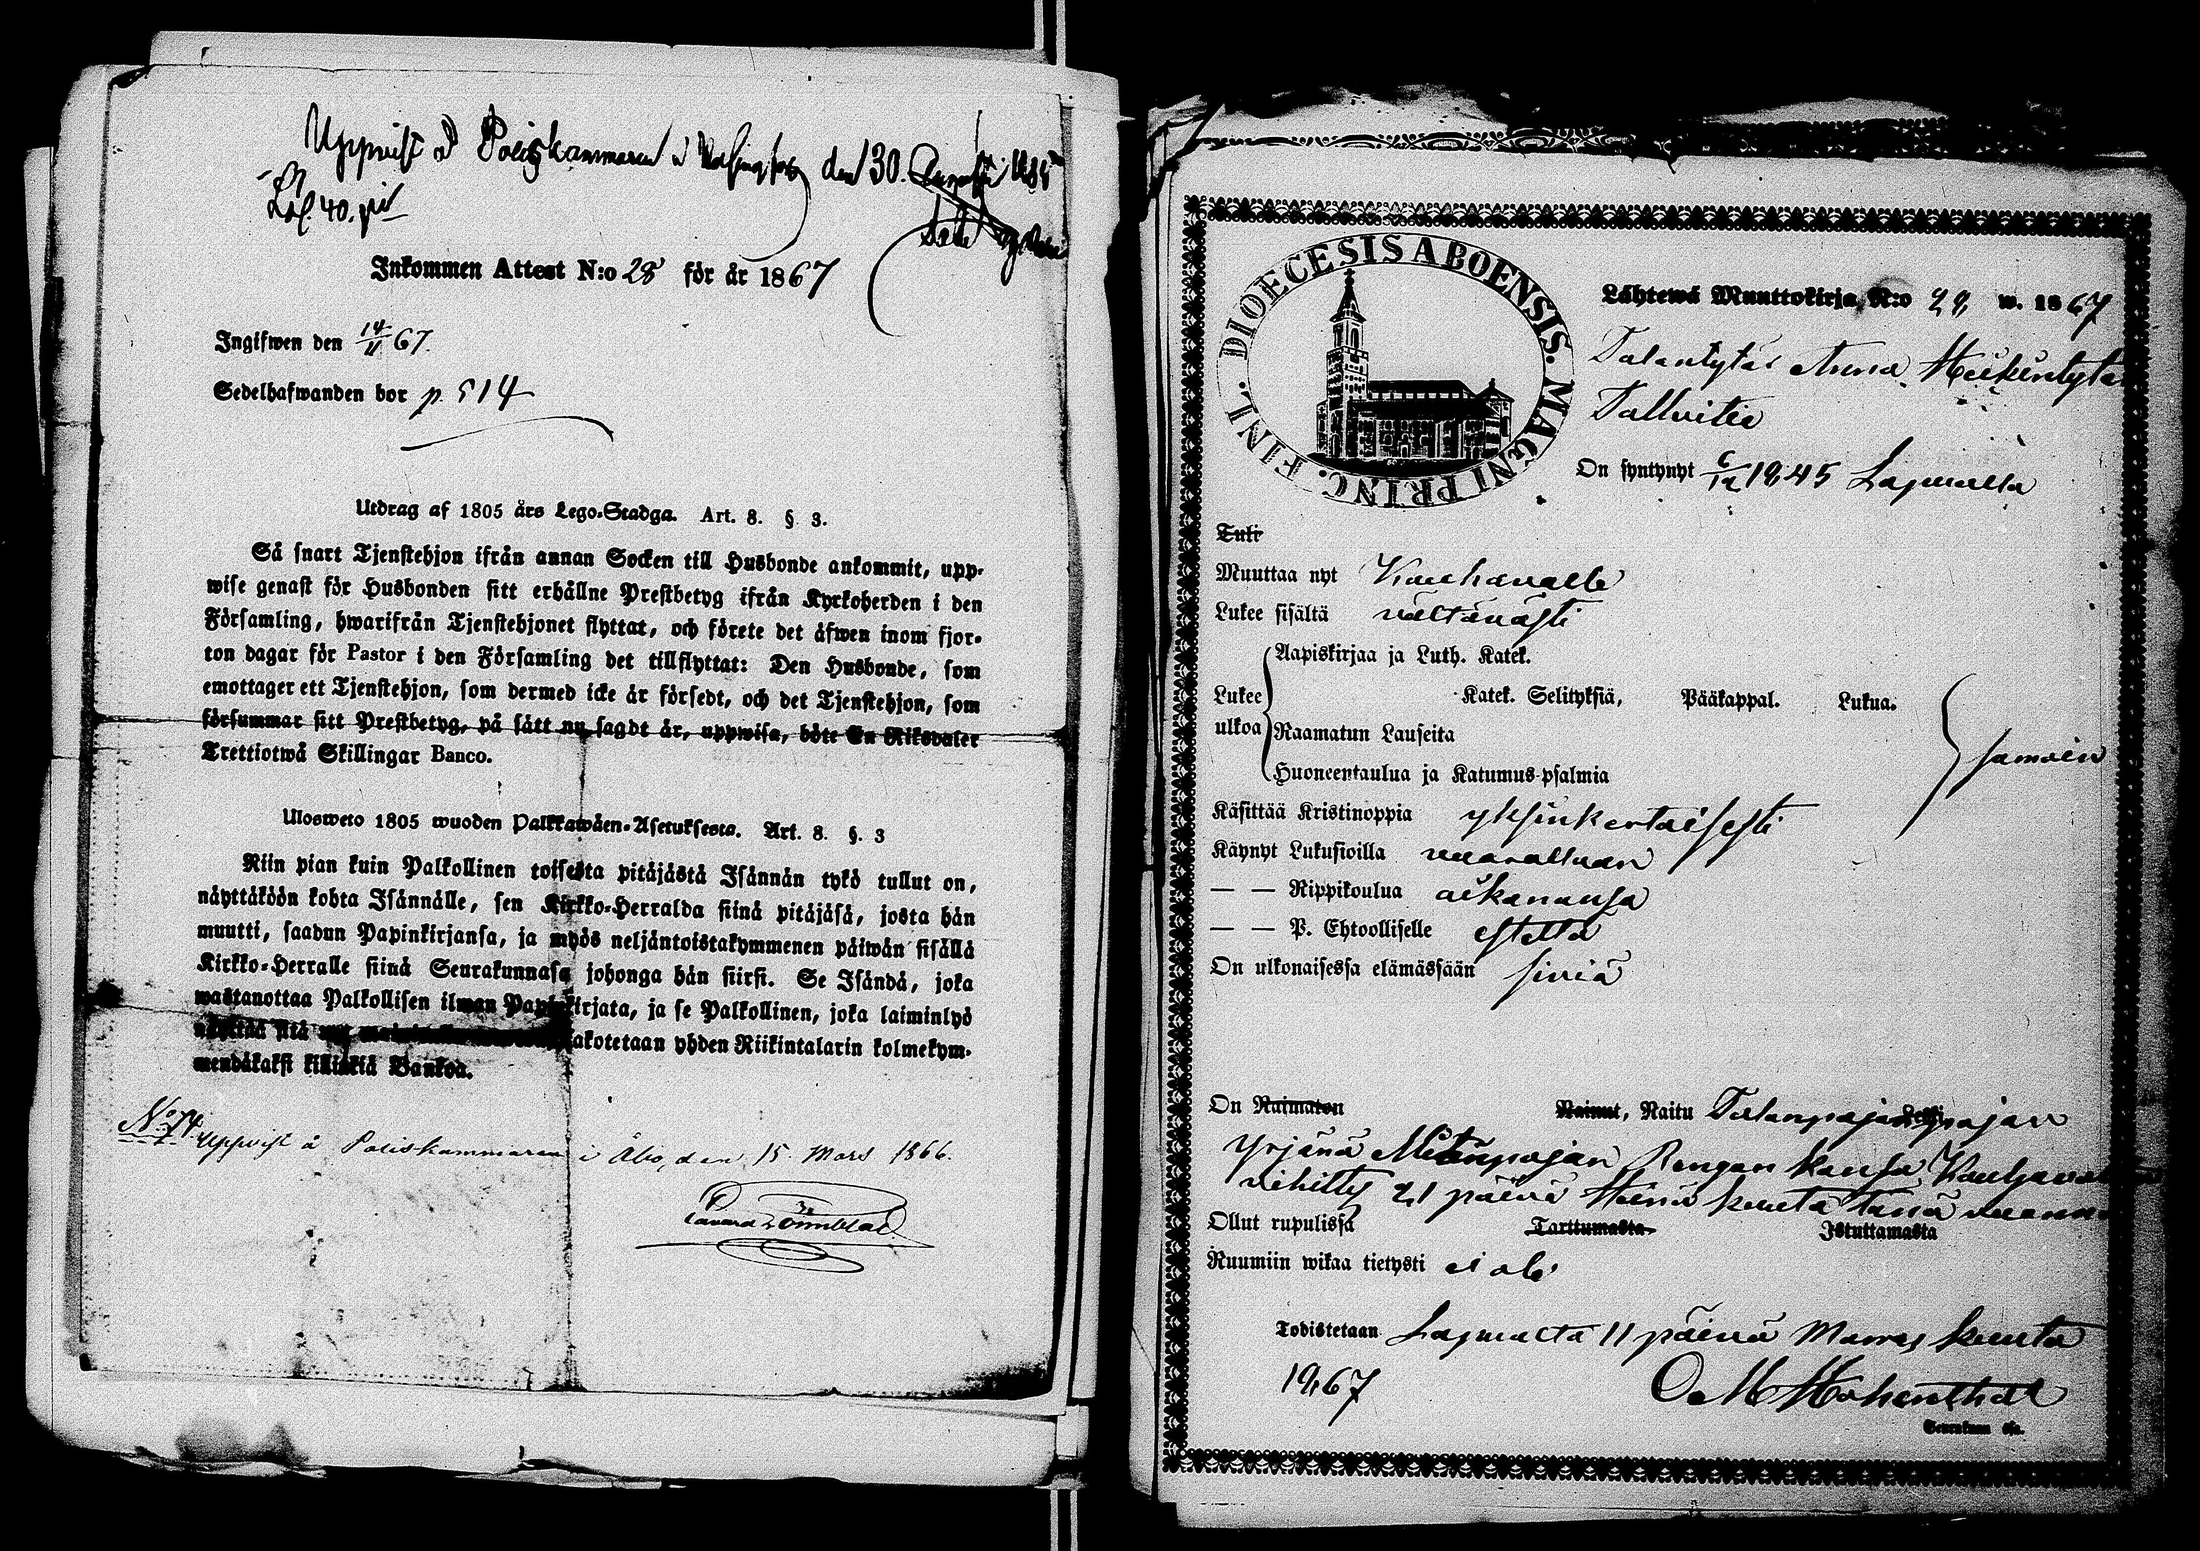 Uppvist å Poliskammaren i Helsingfors den 30. 
Inkommen Attest N:o 28 för år 1867
Ingifwen den 14/11 67.
Sedelhafwanden bor p. 514
Utdrag af 1805 års Lego-Stadga. Art. 8. § 3.
Så snart Tjenstehjon ifrån annan Socken till Husbonde ankommit, upp-
wise genast för Husbonden sitt erhållne Prestbetyg ifrån Kyrkoherden i den
Församling, hwarifrån Tjenstehjonet flyttat, och förete det äfwen inom fjor-
ton dagar för Pastor i den Församling det tillflyttat: Den Husbonde, som
emottager ett Tjenstehjon, som dermed icke är försedt, och det Tjenstehjon, som
försummar sitt Prestbetyg, på sätt nu sagdt är, uppwisa, böte En Riksdaler
Trettiotwå Skillingar Banco.
Ulosweto 1805 wuoden Palkkawäen-Asetuksesta. Art. 8. §. 3
Niin pian kuin Palkollinen toisesta pitäjästä Isännän tykö tullut on,
näyttäköön kohta Isännälle, sen Kirkko-Herralda siinä pitäjäsä, josta hän
muutti, saadun Papinkirjansa, ja myös neljäntoistakymmenen päiwän sisällä
Kirkko-Herralle siinä Seurakunnasa johonga hän siirsi. Se Isändä, joka
wastanottaa Palkollisen ilman Papinkirjata, ja se Palkollinen, joka laiminlyö
näyttää sitä akotetaan yhden Riikintalarin kolmekym-
mendäkaksi killinkiä Bankoa.
No 74. Uppvist å Poliskammaren i Åbo, den 15 Mars 1866.
DIOECESIS ABOENSIS. MAGNI PRINC. FINL.
Lähtewä Muuttokirja, N:o 28 w. 1867
Talontytär Anna Heikintytär
Tallvitie
On syntynyt 6/12 1845 Lapualla
Tuli
Muuttaa nyt Kauhavalle
Lukee sisältä välttävästi
Aapiskirjaa ja Luth. Katek.
Lukee ulkoa
Katek. Selityksiä, Pääkappal. Lukua.
Raamatun Lauseita
samoin
Huoneentaulua ja Katumus-psalmia
Käsittää Kristinoppia yksinkertaisesti
Käynyt Lukusioilla vuorollaan
— — Rippikoulua aikanansa
— — P. Ehtoolliselle
On ulkonaisessa elämässään siviä
On Naimaton Nainut, Naitu
Yrjänä Rengan kansa
vihitty 21 päivä Heinä kuuta tänä vuonna
Ollut rupulissa Tarttumasta Istuttamasta
Ruumiin wikaa tietysti ei ole
Todistetaan Lapualta 11 päivä Marras kuuta
1867